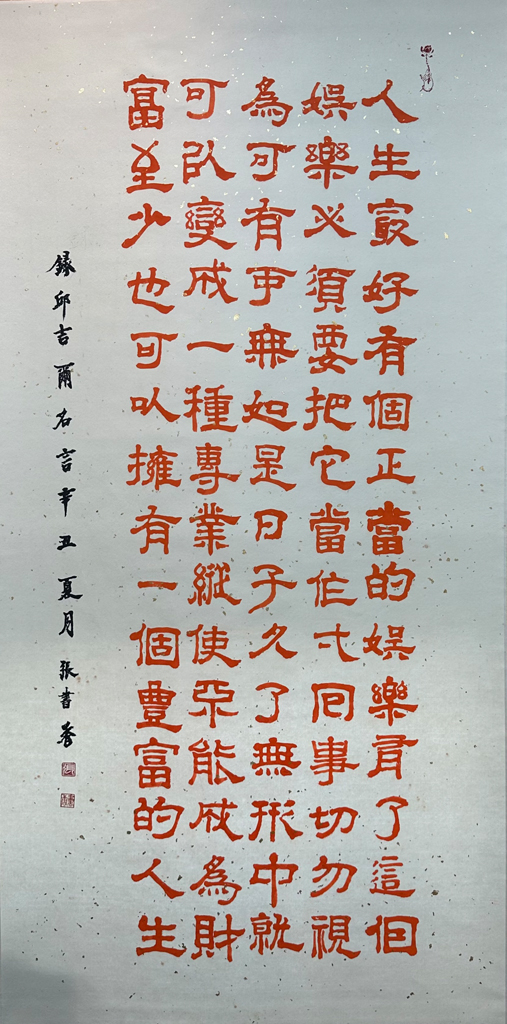 人生最好有個正當的娛樂有了這個
娛樂必須要把它當作弌回事切勿視
為可有可無如是日子久了無形中就
可以變成一種專業縱使不能成為財
富至少也可以擁有一個豐富的人生
錄邱吉爾名言辛丑夏月張書